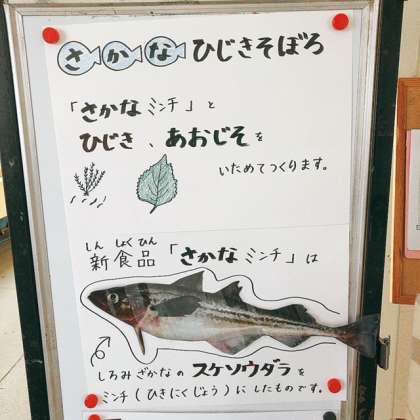 さかなひじきそぼろ
「さかなミンチ」と
ひじき、あおじそを
いためてつくります。
しん しょくひん
新食品「さかなミンチ」は
しろみざかなのスケソウダラを
ミンチ(ひきにくじょう)にしたものです。